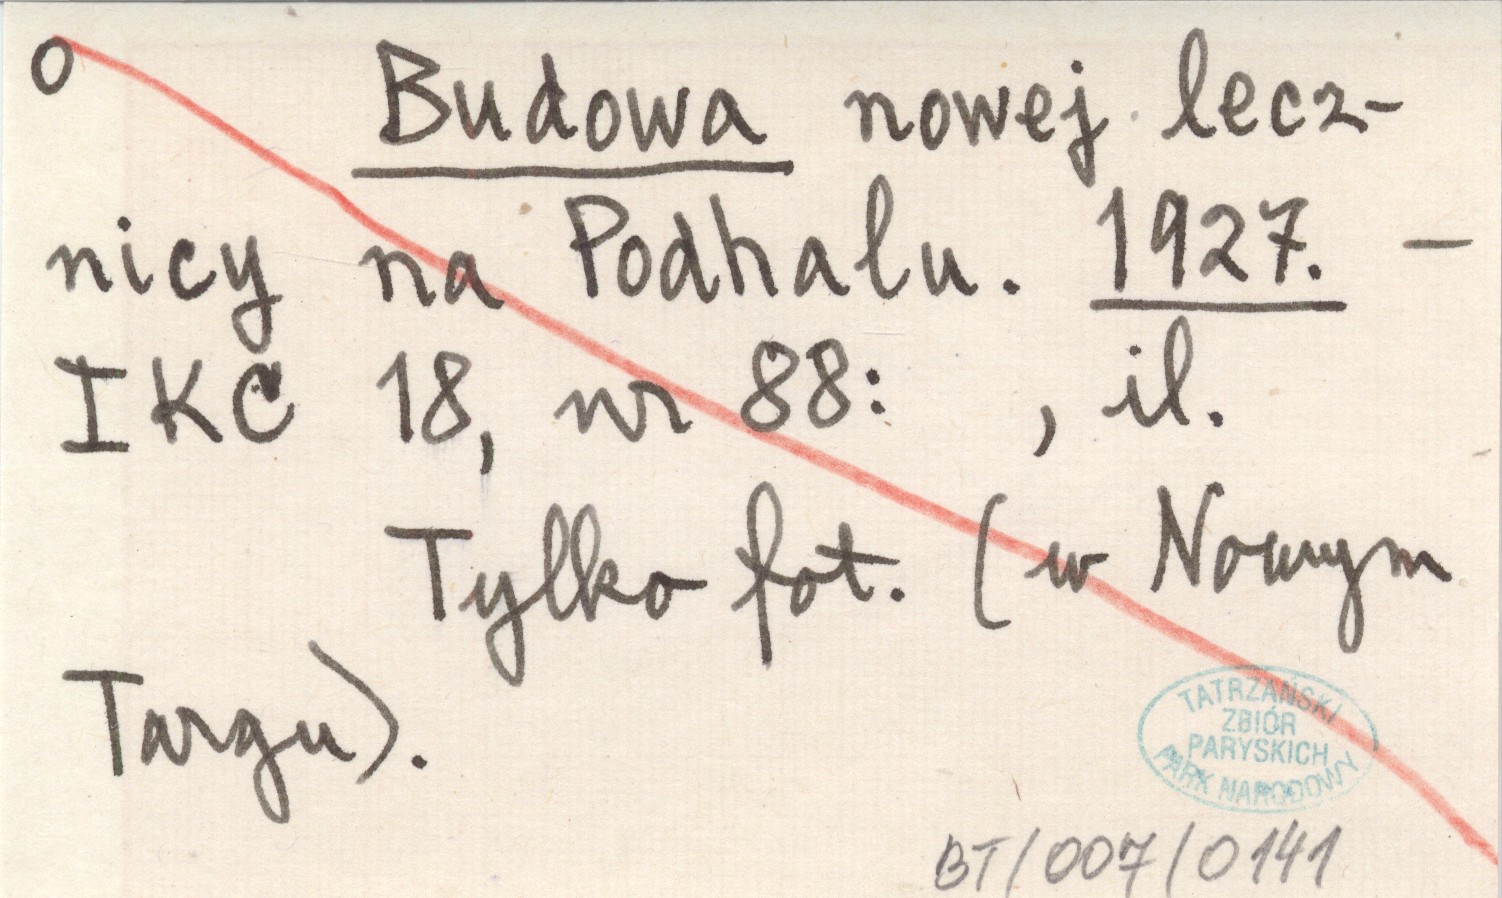 o Budowa nowej lecz-
nicy na Podhalu. 1927. —
IKC 18, nr 88: , il.
Tylko fot. (w Nowym
Targu).
TATRZAŃSKI
ZBIÓR
PARYSKICH
PARK NARODOWY
BT/007/0141